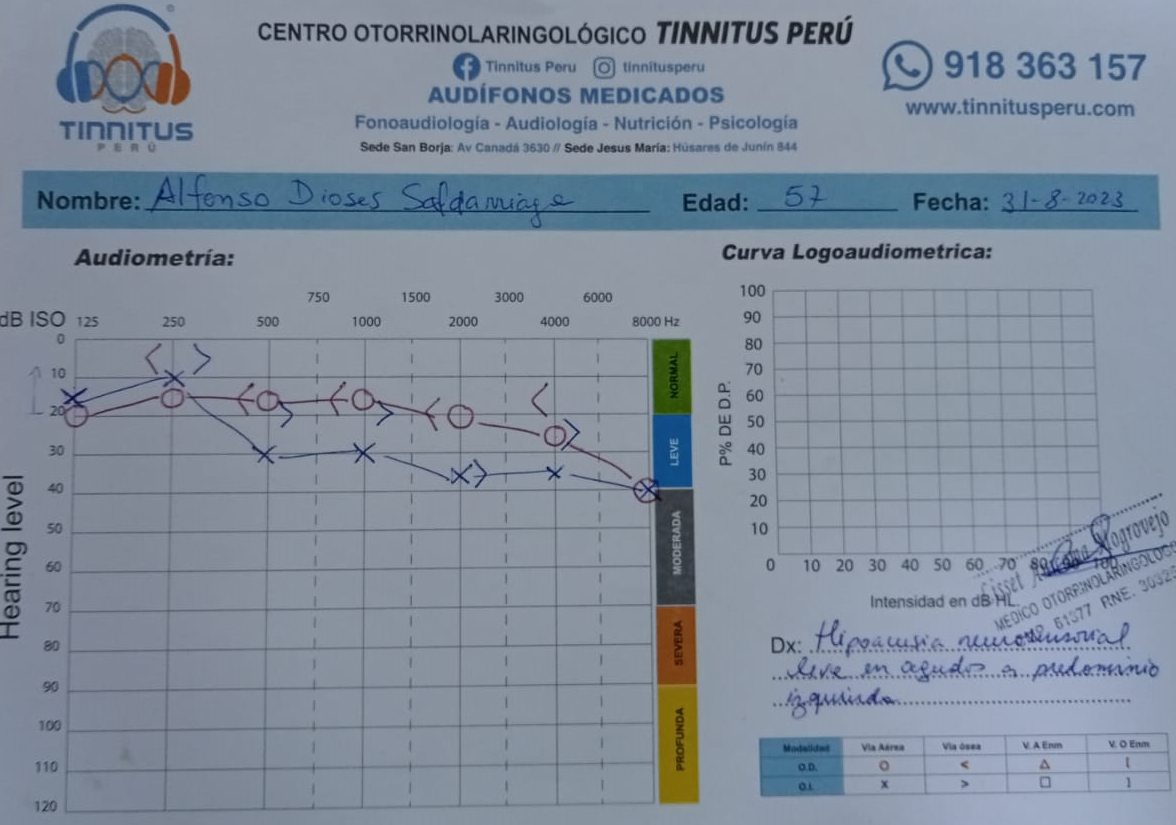 CENTRO OTORRINOLARINGOLÓGICO TINNITUS PERÚ
Tinnitus Peru tinnitusperu
AUDÍFONOS MEDICADOS
Fonoaudiología - Audiología - Nutrición - Psicología
Sede San Borja: Av Canadá 3630 // Sede Jesus Maria: Húsares de Junín 844
TINNITUS
PERÚ
918 363 157
www.tinnitusperu.com
Nombre: Alfonso Dioses Saldarriaga Edad: 57 Fecha: 31-8-2023
Audiometría:
750 1500 3000 6000
dB ISO 125 250 500 1000 2000 4000 8000 Hz
0
10
20
30
40
50
60
70
80
90
100
110
120
Hearing level
NORMAL
LEVE
MODERADA
SEVERA
PROFUNDA
Curva Logoaudiometrica:
100
90
80
70
60
50
40
30
20
10
P% DE D.P.
0 10 20 30 40 50 60 70 80 90 100
Intensidad en dB HL
MEDICO OTORRINOLARINGOLOGO
61377 RNE.
Dx: Hipoacusia neurosensorial
leve en agudos a predominio
izquierda
Modalidad Via Aérea Via ósea V. A Enm V. O Enm
O.D. O < △ [
O.I. X > □ ]